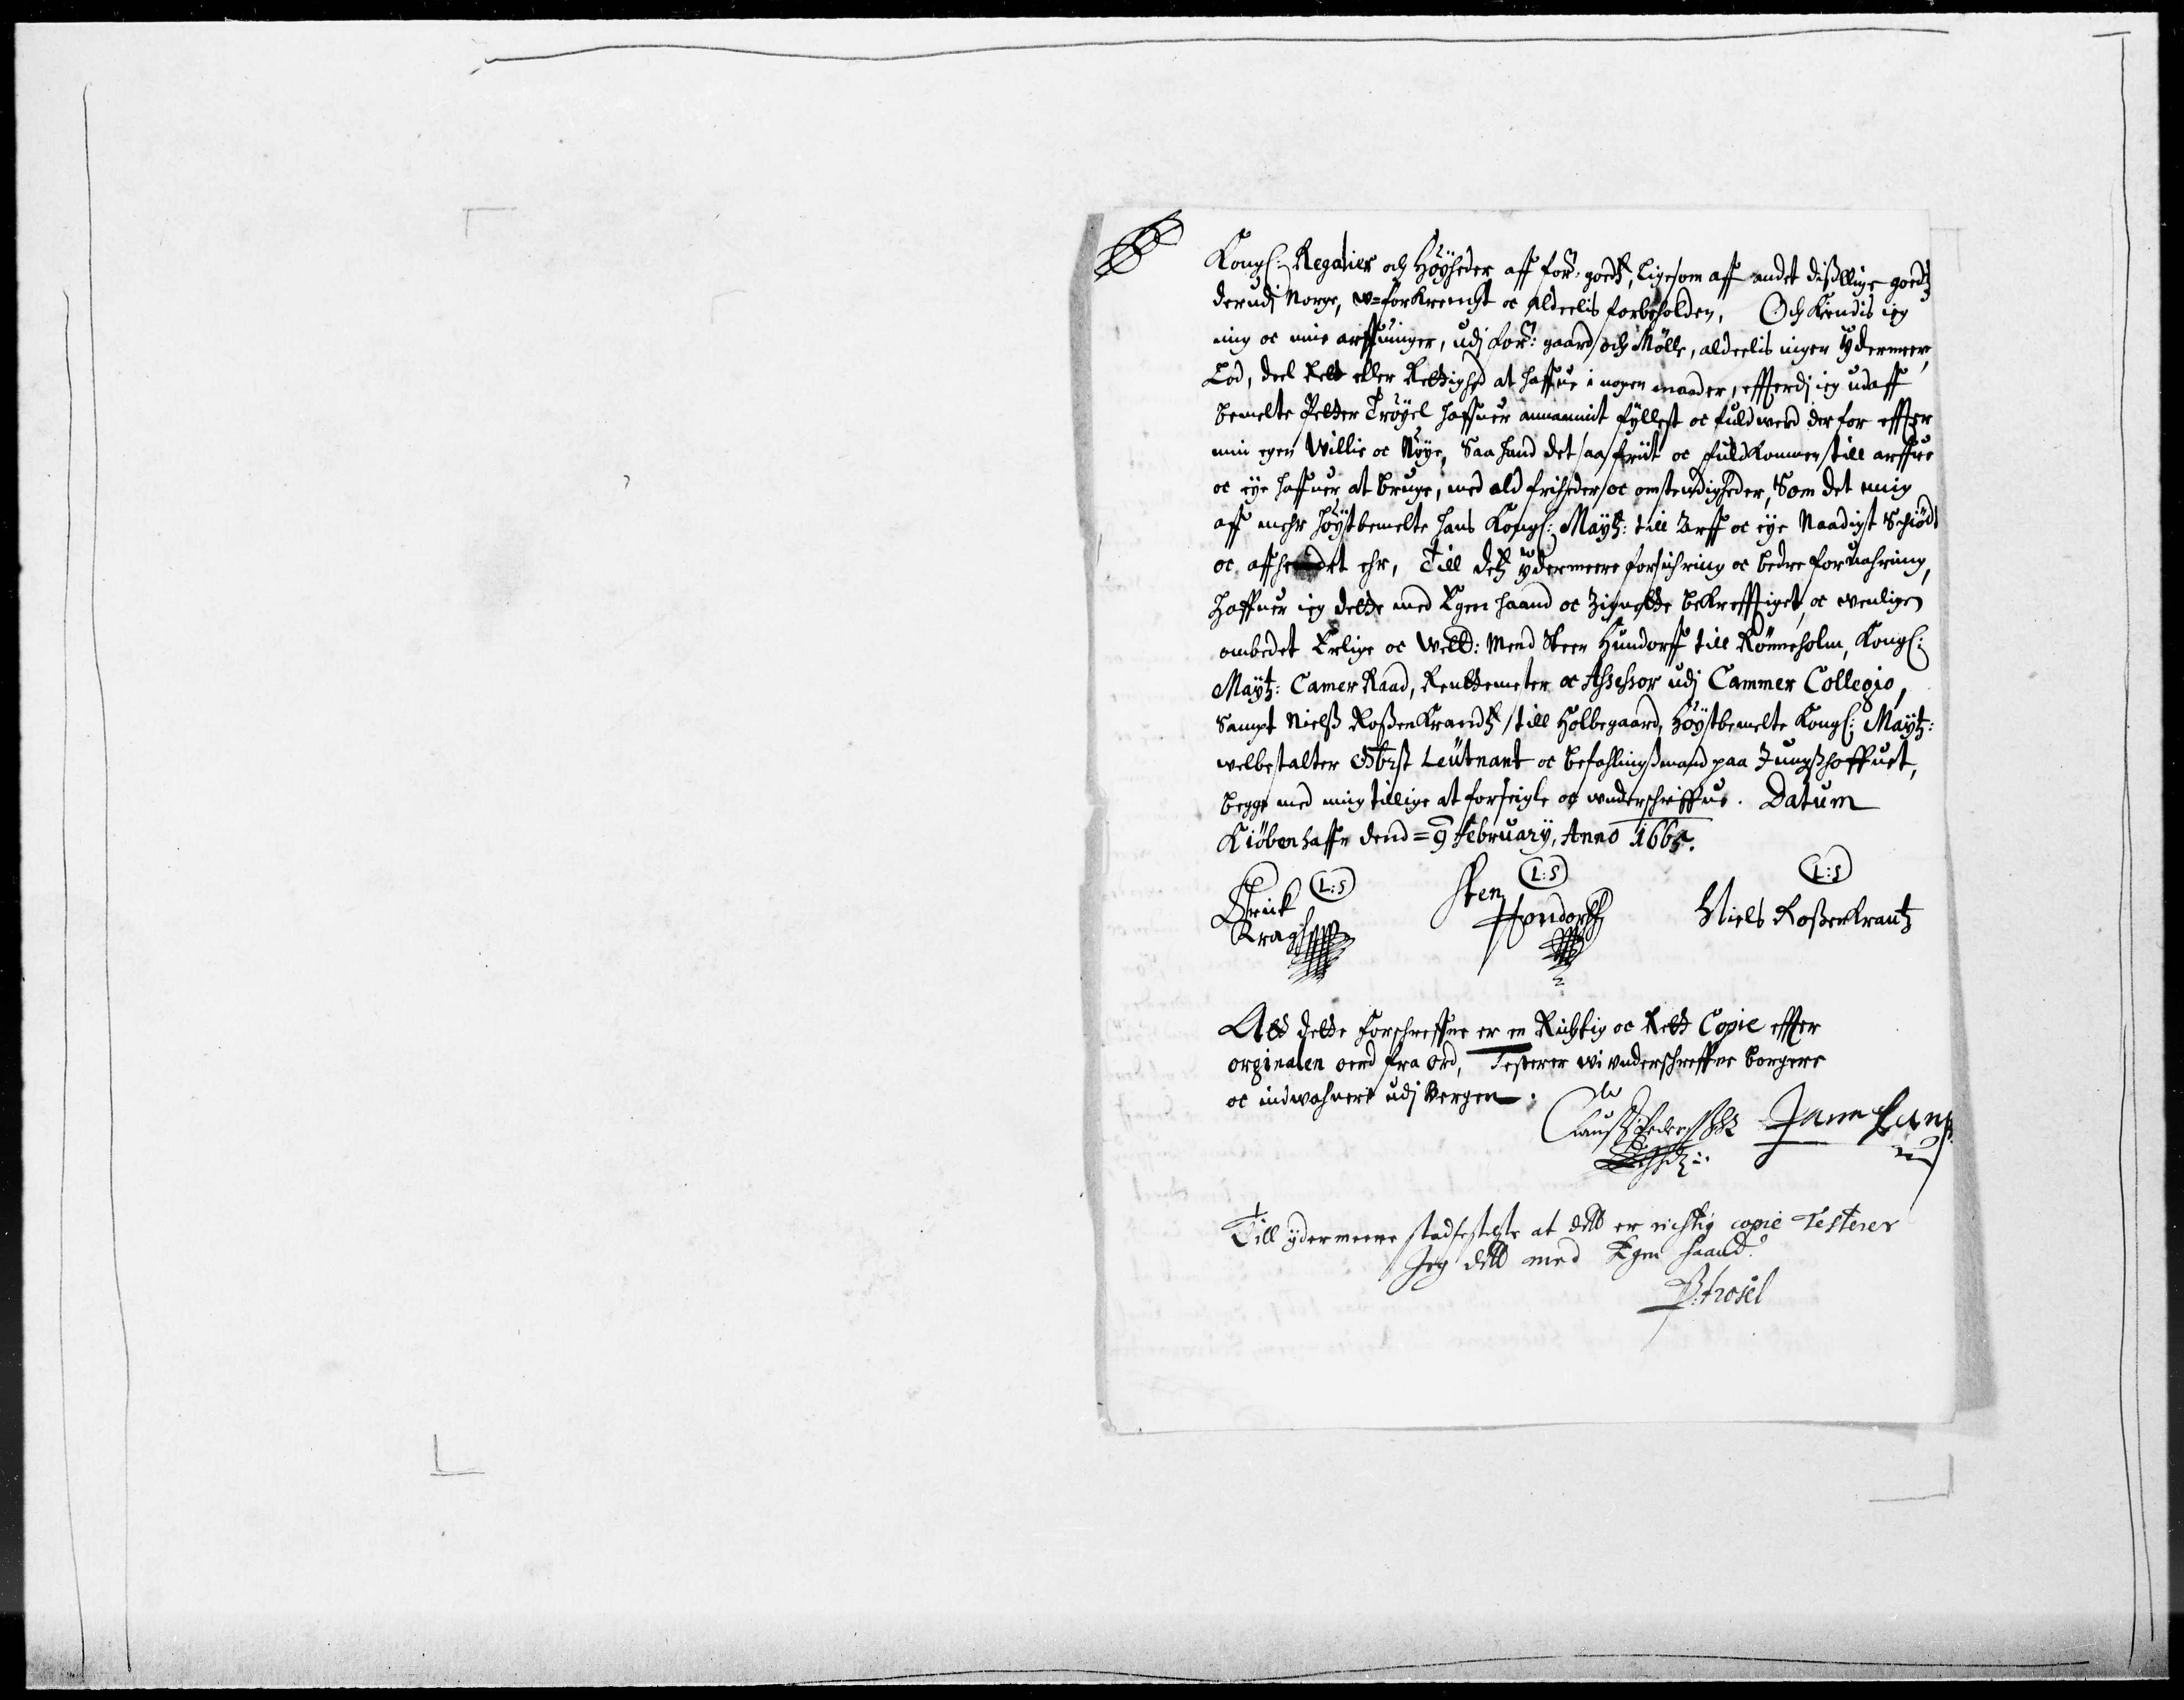 Kongl: Regalier och Höyheder aff for: goedtz, ligesom aff andet dißllige goedtz
derudj Norge, w=forkrencht oc aldeelis forbeholden, Och kiendis ieg
mig oc mine arffuinger, udj for: gaard och Mölle, aldeelis ingen ydermeere
Lod, deel Rett eller Rettighed at haffue i nogen maader, effterdj ieg udaff
bemelte Petter Tröyel haffuer annammit fyllest oc fuldwerd der for effter
min egen Willie oc Nöye, Saa hand det saa friit oc fuldkommen till arffue
oc eye haffuer at bruge, med ald friheder oc omstendigheder, Som det mig
aff mehr höystbemelte hans Kongl: Maytz: till Arff oc eye Naadigst Schiödt
oc affhendet ehr, Till detz ydermeere forsichring oc bedre foruahring,
haffuer ieg dette med Egen haand oc Zignette bekrefftiget, oc venligen
ombedet Erlige oc Welb: Mend Steen Hundorff till Rönneholm, Kongl:
Maytz: Camer Raad, Rentemeter oc Assessor udj Cammer Collegio,
Sampt Nielß Roßenkrandtz till Holbegaard, Höystbemelte Kongl: Maytz:
welbestalter Obrst Leütnant oc befahlingßmand paa Jungßhoffuet,
begge med mig tillige at forseigle oc underschriffue. Datum
Kiöbenhaffn dend = 9 February, Anno 1665.
L:S L:S L:S
Erick Sten Niels Roßenkrantz
Kragh Hondorff
Att dette forschreffne er en Richtig oc Rett Copie effter
orginalen oerd fra ord, Testerer wi underschreffne borgere
oc indwohnere udj Bergen.
Clauß Jann
Till ydermeere stadfestelße at dette er richtig copie Testerer
Jeg dette med Egen haand.
P: trosel